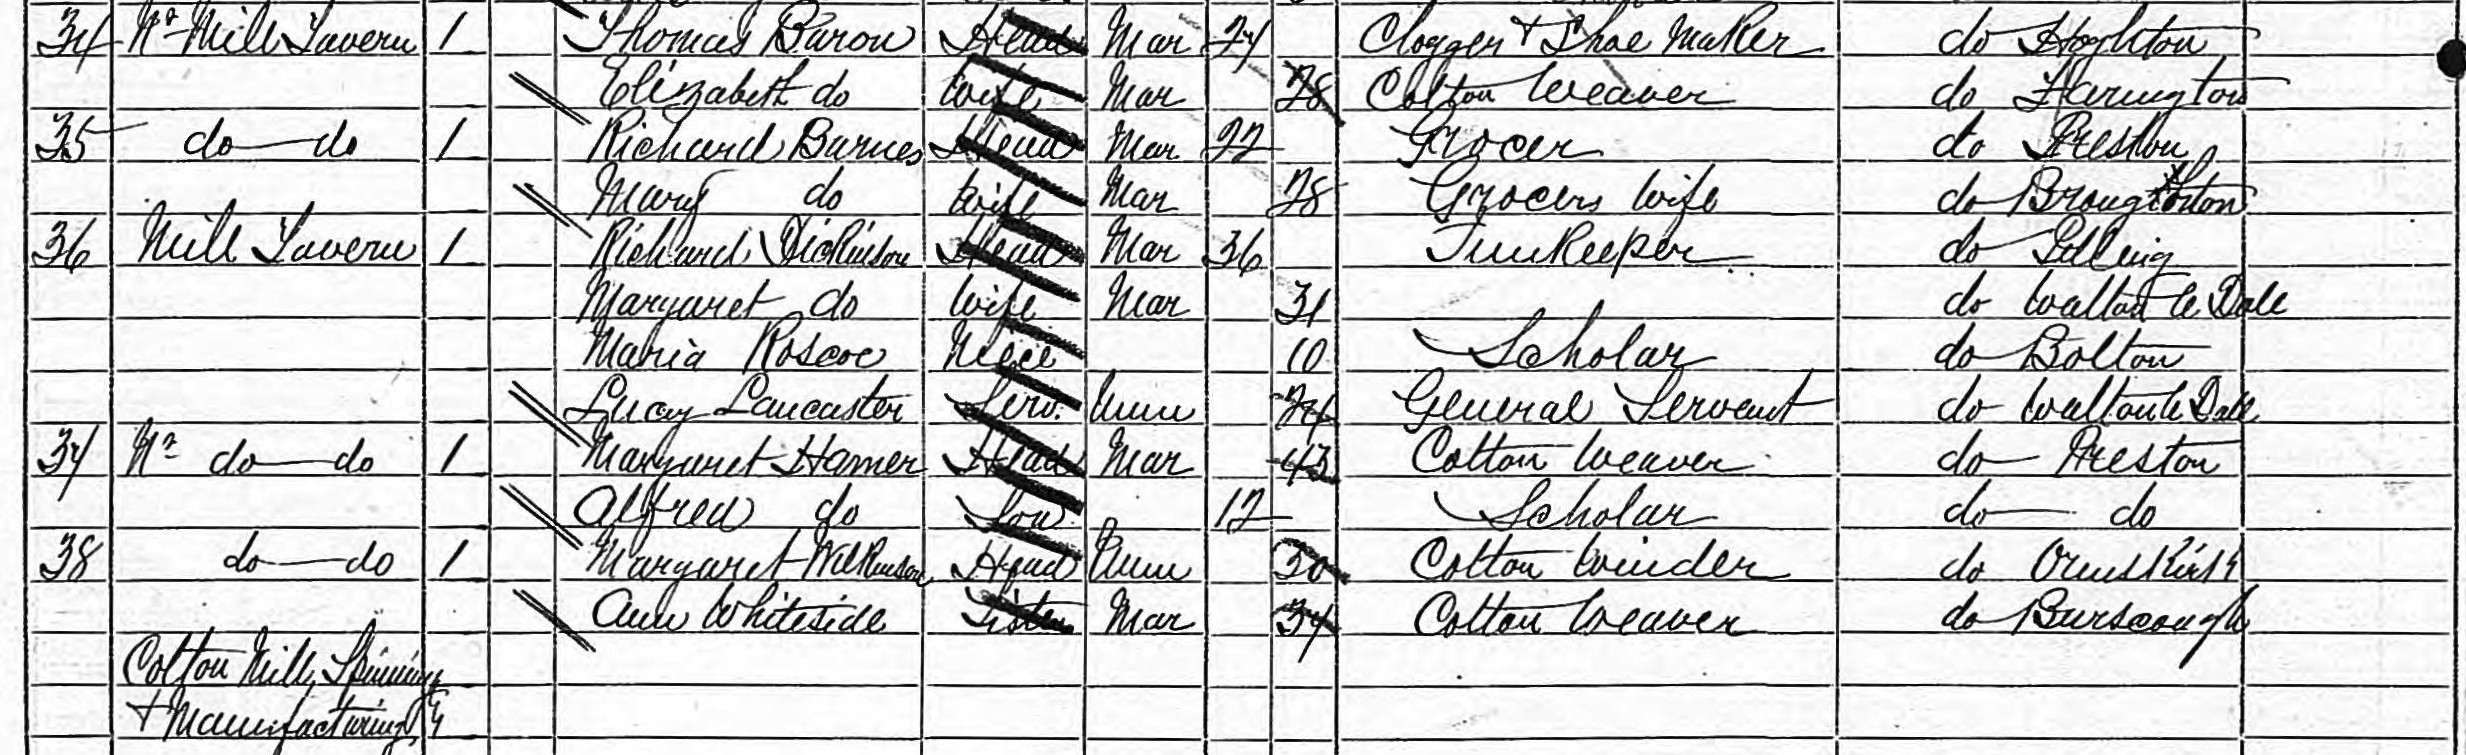 34 Nr Mill Tavern 1 Thomas Baron Head Mar 24 Clogger & Shoe Maker do Hoghton
Elizabeth do Wife Mar 28 Cotton Weaver do Farington
35 do do 1 Richard Barnes Head Mar 22 Grocer do Preston
Mary do Wife Mar 28 Grocers Wife do Broughton
36 Mill Tavern 1 Richard Dickinson Head Mar 36 Innkeeper do
Margaret do Wife Mar 31 do Walton le Dale
Maria Roscoe Niece 10 Scholar do Bolton
Lucy Lancaster Serv. Unm 24 General Servant do Walton le Dale
37 Nr do do 1 Margaret Hamer Head Mar 43 Cotton Weaver do Preston
Alfred do Son 12 Scholar do do
38 do do 1 Margaret Wilkinson Head Unm 30 Cotton Winder do Ormskirk
Ann Whiteside Sister Mar 34 Cotton Weaver do Burscough
Cotton Mill, Spinning
& Manufacturing